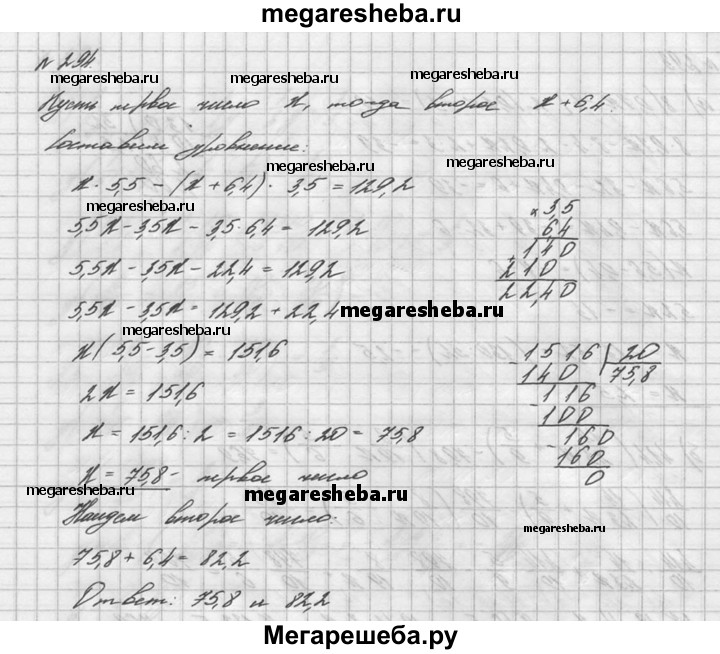 megaresheba.ru
№ 294.
megaresheba.ru megaresheba.ru megaresheba.ru
Пусть первое число x, тогда второе x + 6,4.
Составим уравнение:
megaresheba.ru megaresheba.ru
x · 5,5 - (x + 6,4) · 3,5 = 129,2
megaresheba.ru
5,5x - 3,5x - 3,5·6,4 = 129,2
5,5x - 3,5x - 22,4 = 129,2
5,5x - 3,5x = 129,2 + 22,4
megaresheba.ru
megaresheba.ru
x(5,5-3,5) = 151,6
2x = 151,6
x = 151,6 : 2 = 1516 : 20 = 75,8
x = 75,8 - первое число
megaresheba.ru megaresheba.ru
Найдем второе число:
75,8 + 6,4 = 82,2
Ответ: 75,8 и 82,2
× 3,5
6,4
140
210
22,40
- 1516 | 20
140 75,8
- 116
100
- 160
160
0
megaresheba.ru
Мегарешеба.ру